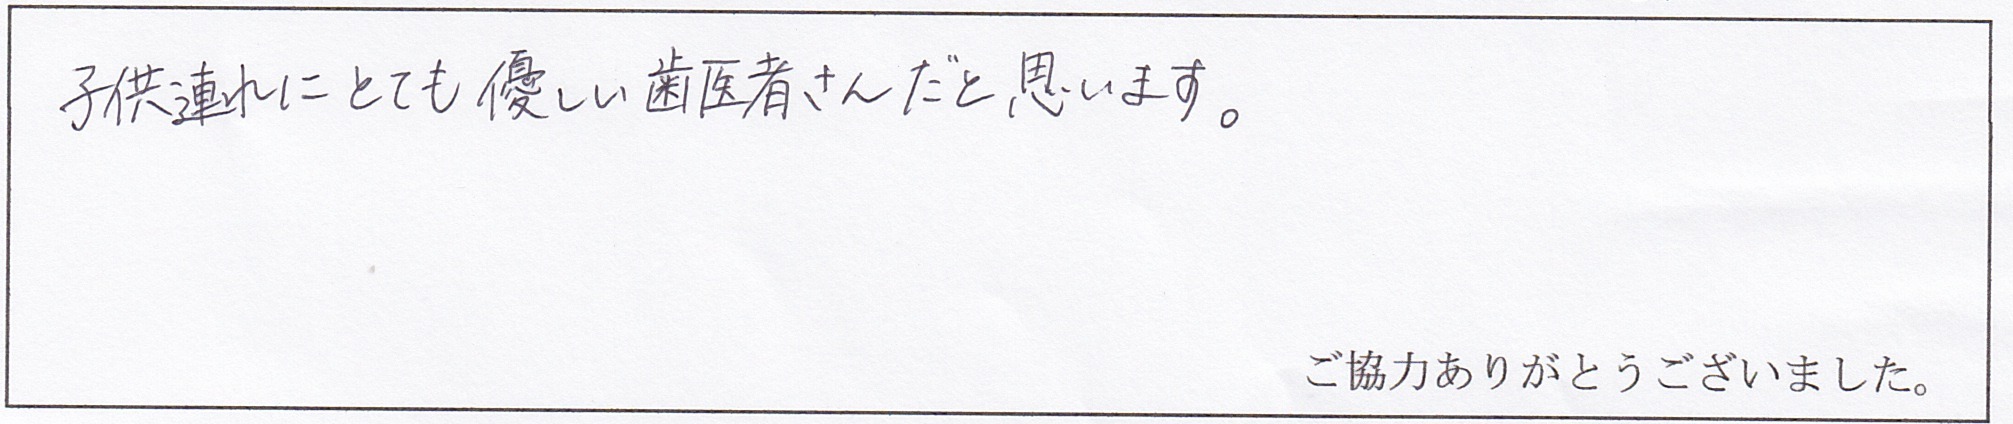 子供連れにとても優しい歯医者さんだと思います。
ご協力ありがとうございました。